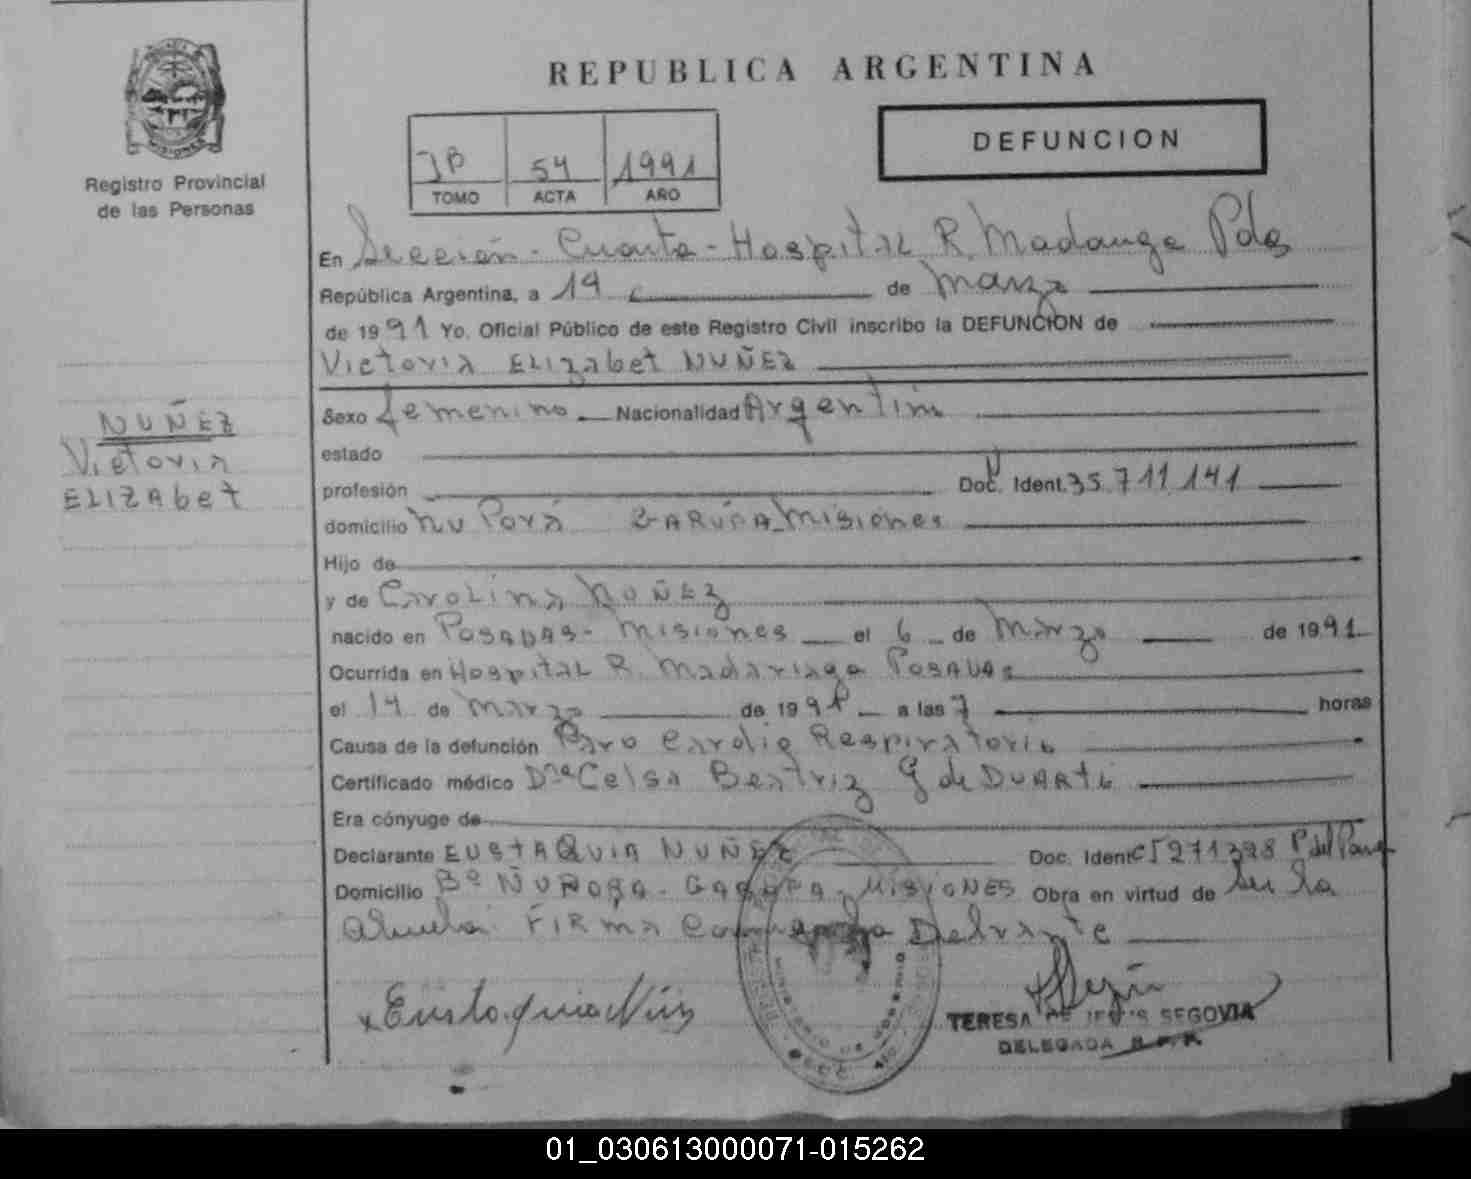 REPUBLICA ARGENTINA
DEFUNCION
54 1991
TOMO ACTA AÑO
MISIONES
Registro Provincial
de las Personas
En Sección - Cuarta - Hospital R. Madariaga Pdas
República Argentina, a 19 de Marzo
de 1991 Yo. Oficial Público de este Registro Civil inscribo la DEFUNCION de
Victoria ELIZAbet NUÑEZ
NUÑEZ
Victoria
ELIZAbet
Sexo femenino Nacionalidad Argentina
estado
profesión Doc. Ident. 35.711.141
domicilio Ñu Porá GARUPA Misiones
Hijo de
y de Carolina NUÑEZ
nacido en POSADAS - Misiones el 6 de Marzo de 1991
Ocurrida en Hospital R. Madariaga POSADAS
el 14 de Marzo de 1991 a las 7 horas
Causa de la defunción Paro Cardio Respiratorio
Certificado médico Dra Celsa Beatriz G de DUARTE
Era cónyuge de
Declarante EUSTAQUIA NUÑEZ Doc. Ident CI 271398
Domicilio Bº ÑU PORA - GARUPA - MISIONES Obra en virtud de ser la
abuela. FIRMA
Eustaquia Núñez
TERESA DE JESUS SEGOVIA
DELEGADA R.P.P.
01_030613000071-015262